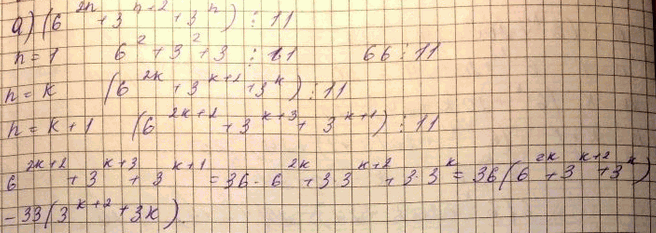 а) (6^{2n} + 3^{n+2} + 3^{n}) ⋮ 11
n = 1 6^{2} + 3^{2} + 3 ⋮ 11 66 ⋮ 11
n = k (6^{2k} + 3^{k+2} + 3^{k}) ⋮ 11
n = k + 1 (6^{2k+2} + 3^{k+3} + 3^{k+1}) ⋮ 11
6^{2k+2} + 3^{k+3} + 3^{k+1} = 36 · 6^{2k} + 3·3^{k+2} + 3·3^{k} = 36(6^{2k} + 3^{k+2} + 3^{k})
- 33(3^{k+2} + 3k).